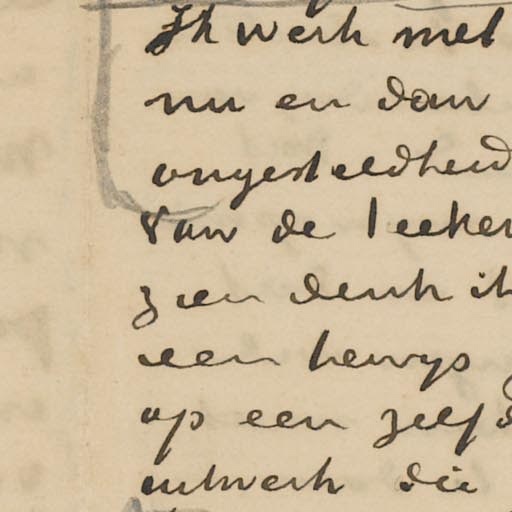 Ik werk met
nu en dan
ongesteldheid
van de teeken
zien denk ik
een bewijs
op een zelfd
uitwerk die